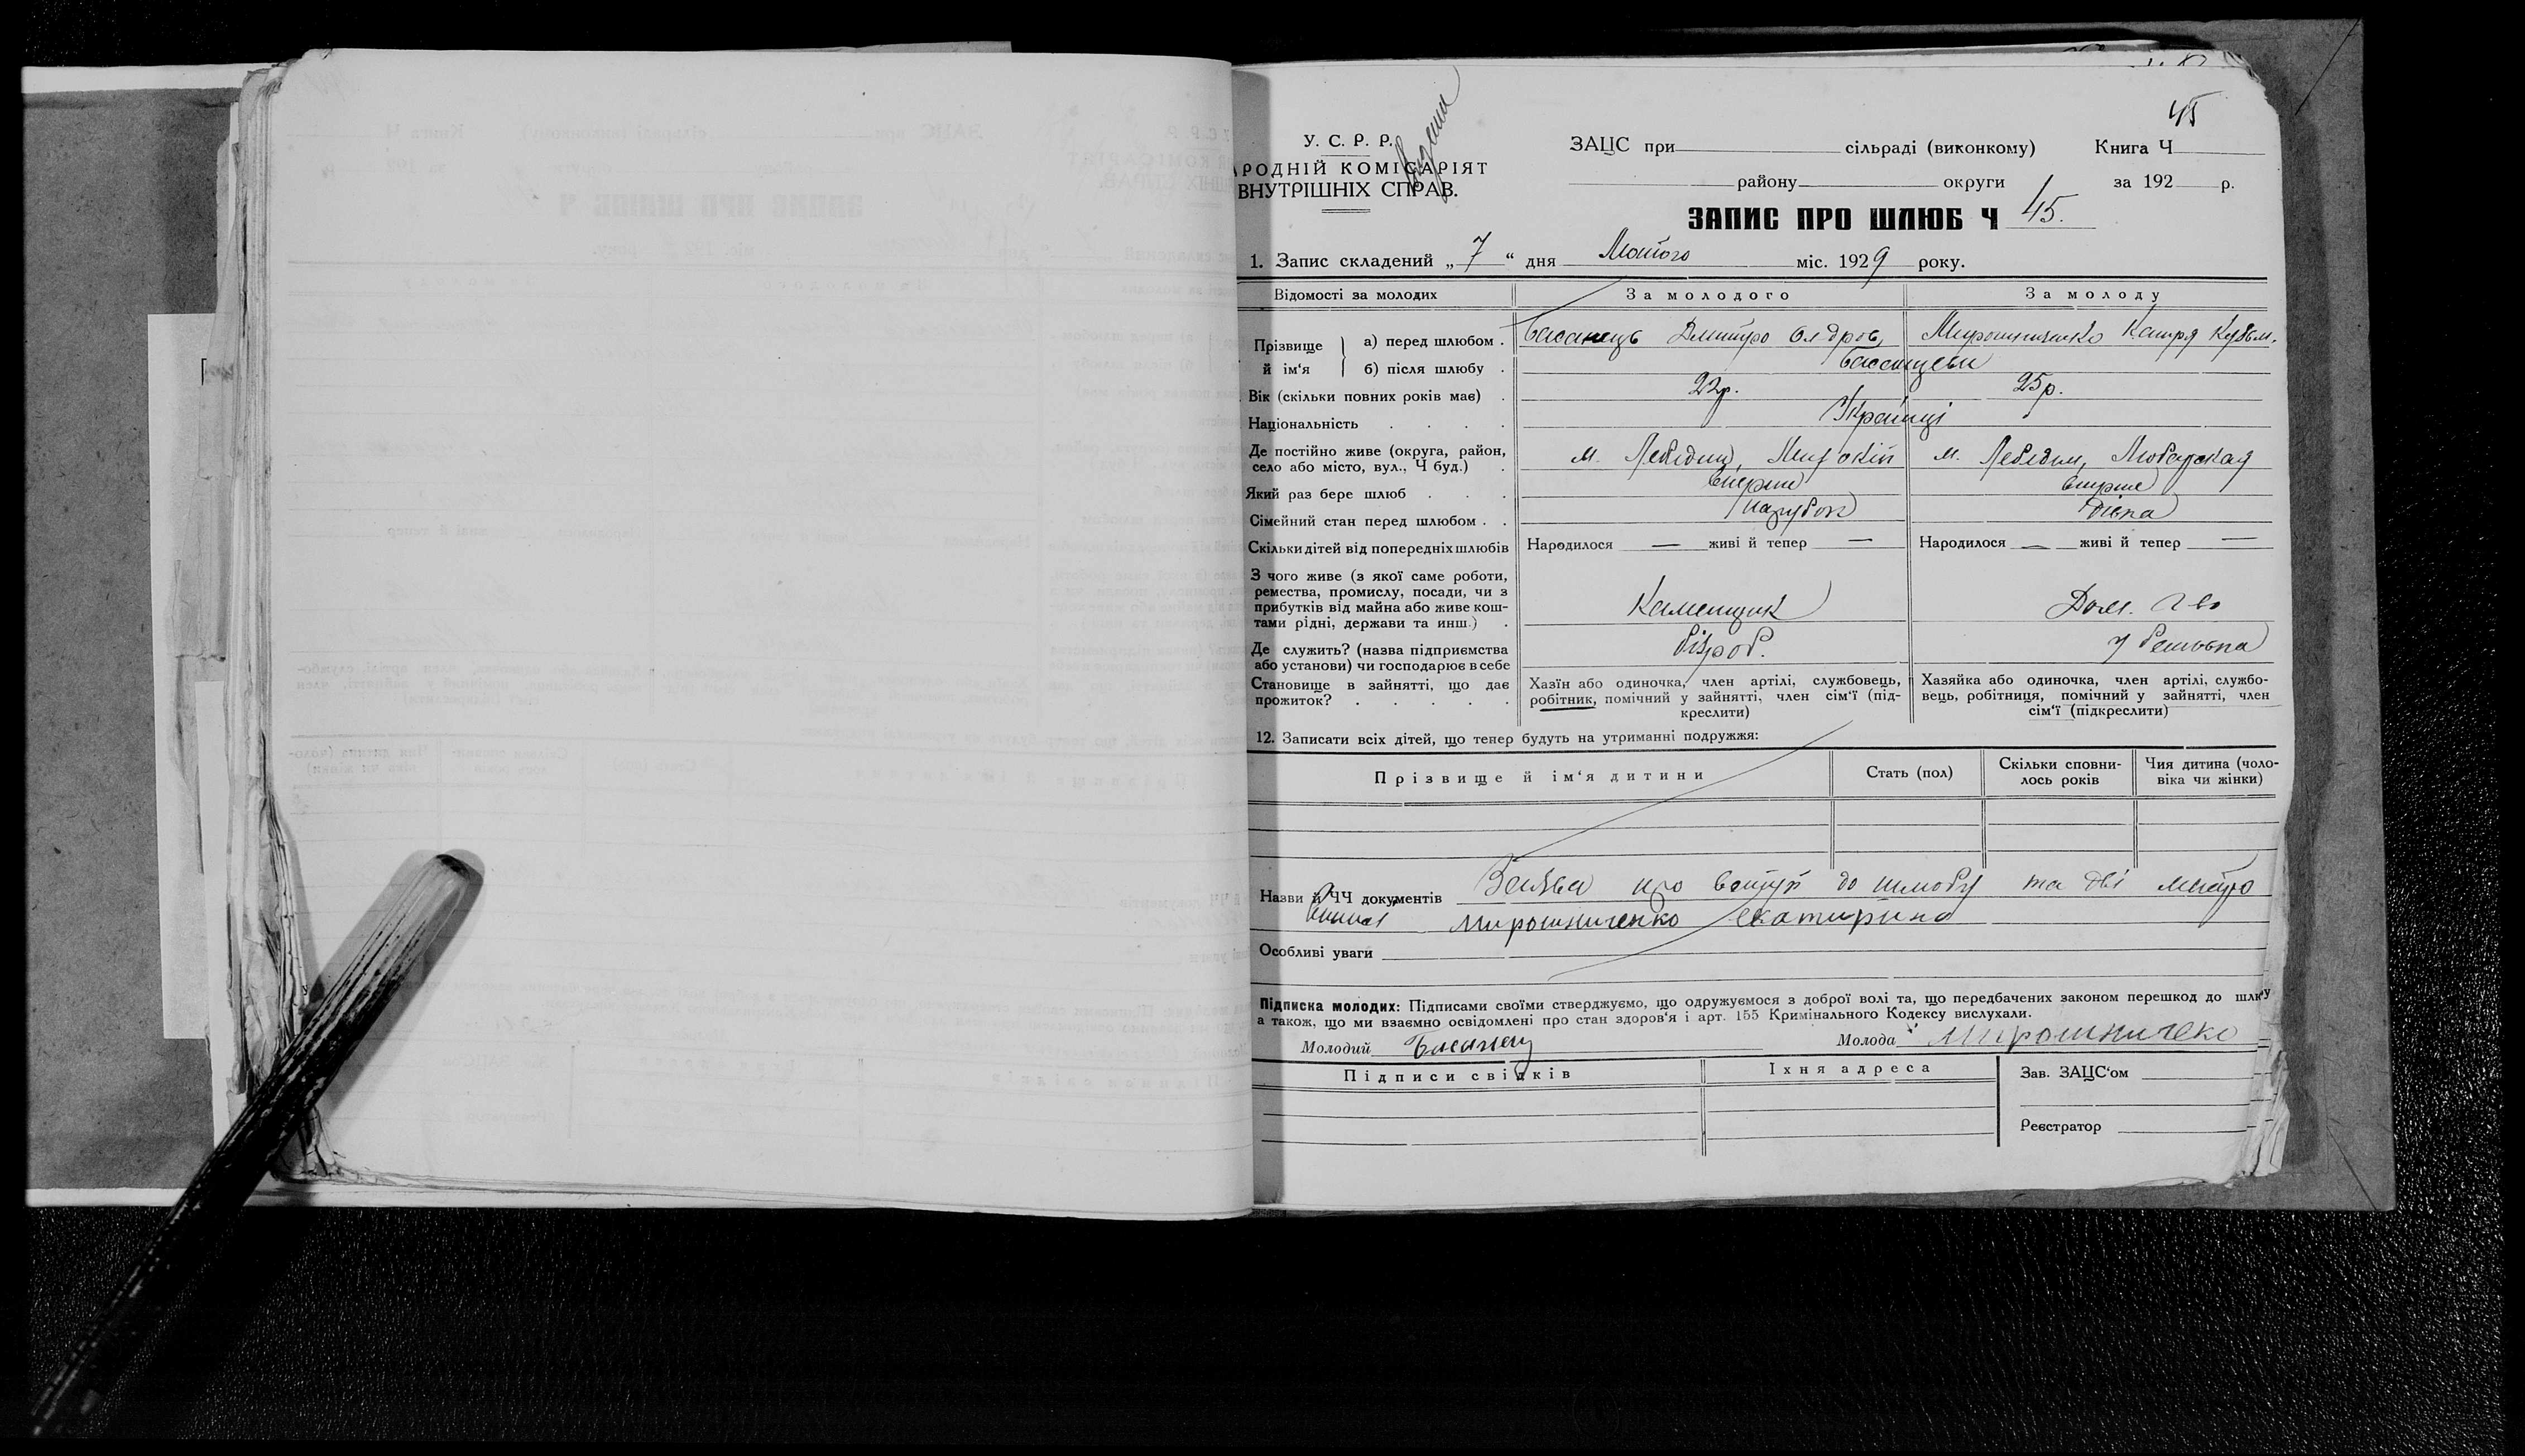 45
У. С. Р. Р.
РОДНІЙ КОМІСАРІЯТ
ВНУТРІШНІХ СПРАВ.
ЗАЦС при сільраді (виконкому) Книга Ч
району округи за 192 р.
ЗАПИС ПРО ШЛЮБ Ч 45.
1. Запис складений „ 7 “ дня Лютого міс. 1929 року.
Відомості за молодих За молодого За молоду
Прізвище й ім‘я а) перед шлюбом . Басанець Дмитро Олдров, Мирошниченко Катря Кузьм.
б) після шлюбу . Басанцеви
Вік (скільки повних років має) . 22р. 25р.
Національність . . . . Українці
Де постійно живе (округа, район, село або місто, вул., Ч буд.) . м. Лебедин, м. Лебедин,
Який раз бере шлюб . . . вперше вперше
Сімейний стан перед шлюбом . . парубок дівка
Скільки дітей від попередніх шлюбів Народилося — живі й тепер — Народилося — живі й тепер —
З чого живе (з якої саме роботи,
ремества, промислу, посади, чи з
прибутків від майна або живе кош-
тами рідні, держави та инш.) . Каменщик Дом.
Де служить? (назва підприємства
або установи) чи господарює в себе
Становище в зайнятті, що дає
прожиток? . . . . .
Хазїн або одиночка, член артілі, службовець,
робітник, помічний у зайнятті, член сім‘ї (під-
креслити)
Хазяйка або одиночка, член артілі, службо-
вець, робітниця, помічний у зайнятті, член
сім‘ї (підкреслити)
12. Записати всіх дітей, що тепер будуть на утриманні подружжя:
Прізвище й ім‘я дитини Стать (пол) Скільки сповни-
лось років Чия дитина (чоло-
віка чи жінки)
Назви й ЧЧ документів Заява про вступ до шлюбу та дві
Мирошниченко Екатирина
Особливі уваги
Підписка молодих: Підписами своїми стверджуємо, що одружуємося з доброї волі та, що передбачених законом перешкод до
а також, що ми взаємно освідомлені про стан здоров‘я і арт. 155 Кримінального Кодексу вислухали.
Молодий Басанец Молода Мирошничеко
Підписи свідків Їхня адреса Зав. ЗАЦС‘ом
Реєстратор